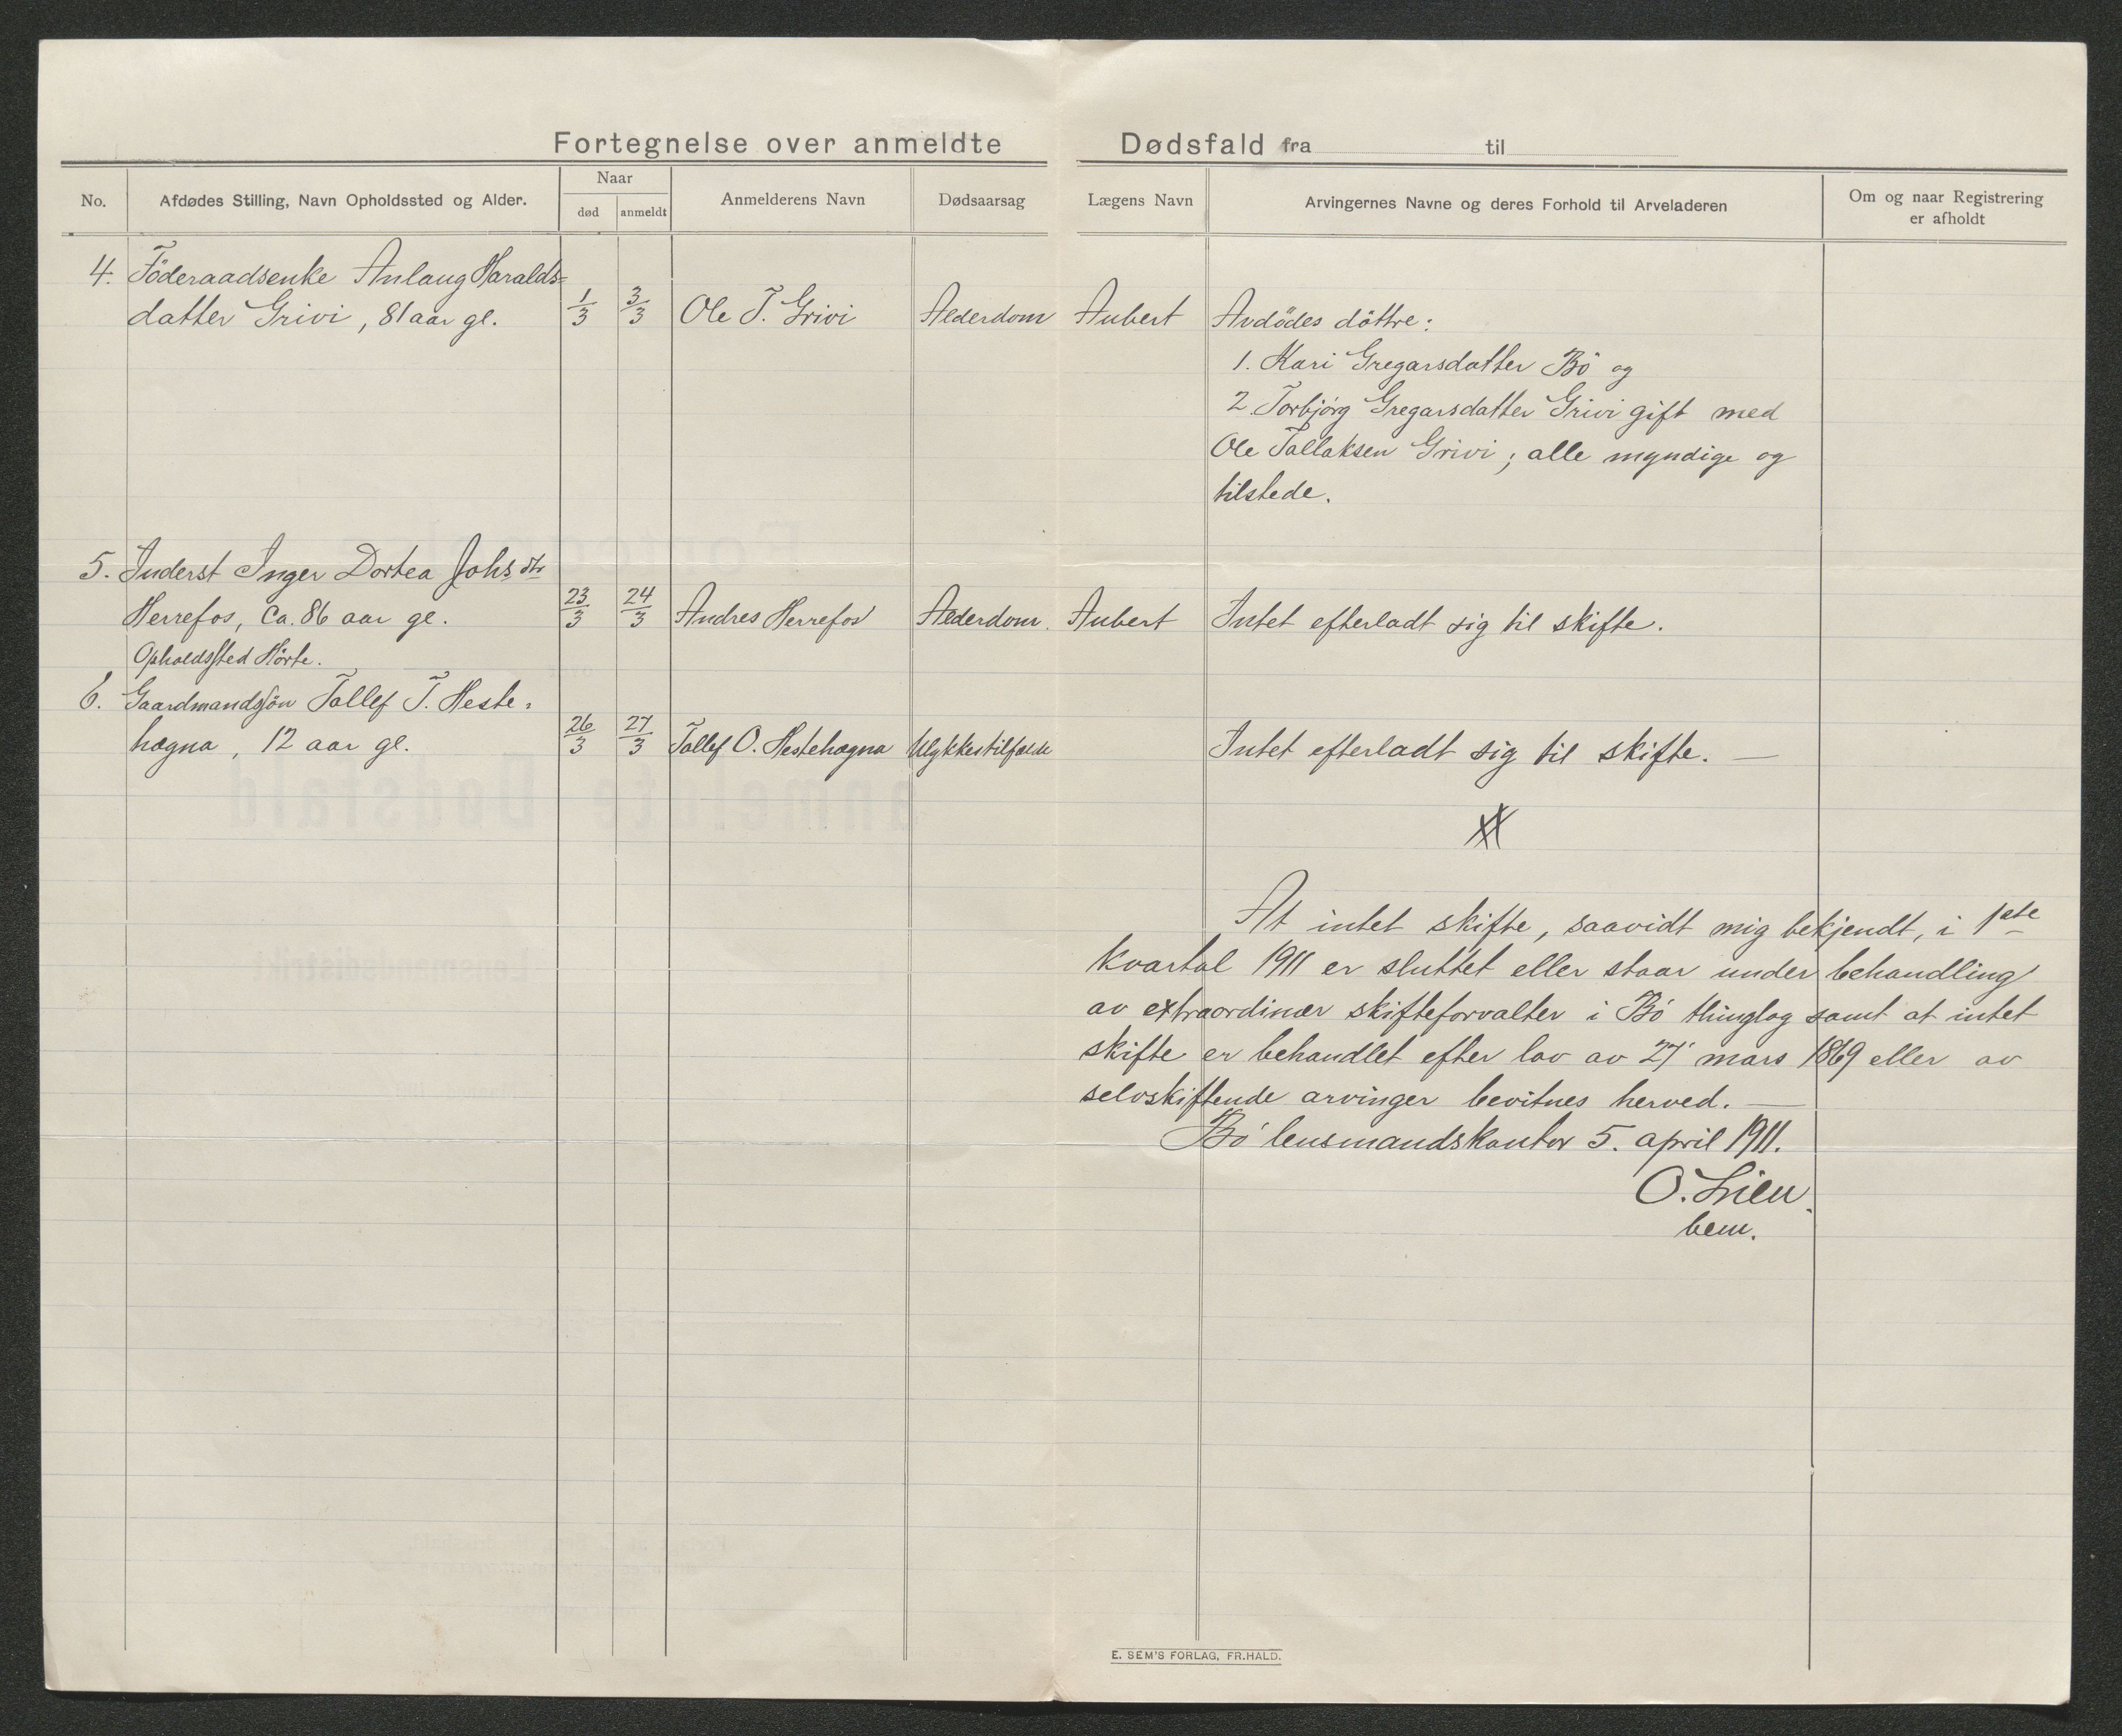 Fortegnelse over anmeldte Dødsfald fra til
No. Afdødes Stilling, Navn Opholdssted og Alder. Naar død anmeldt Anmelderens Navn Dødsaarsag Lægens Navn Arvingernes Navne og deres Forhold til Arveladeren Om og naar Registrering er afholdt
4. Föderaadsenke Anlaug Haralds=
datter Grivi, 81 aar gl. 1/3 3/3 Ole T. Grivi Alderdom Aubert Avdödes döttre:
1. Kari Gregarsdatter Bö og
2. Torbjörg Gregarsdatter Grivi gift med
Ole Tallaksen Grivi; alle myndige og
tilstede.
5. Inderst Inger Dortea Johs dtr
Herrefos, Ca. 86 aar gl. 23/3 24/3 Andres Herrefos Alderdom. Aubert Intet efterladt sig til skifte.
Opholdssted Hörte.
6. Gaardmandssön Tallef T. Heste=
hagna, 12 aar gl. 26/3 27/3 Tallef O. Hestehagna Ulykkestilfælde Intet efterladt sig til skifte. —
At intet skifte, saavidt mig bekjendt, i 1ste
kvartal 1911 er sluttet eller staar under behandling
av extraordinær skifteforvalter i Bö thinglag samt at intet
skifte er behandlet efter lov av 27 mars 1869 eller av
selvskiftende arvinger bevitnes herved. —
Bö lensmandskontor 5. april 1911.
O. Lien.
bem.
E. SEM'S FORLAG, FR.HALD.